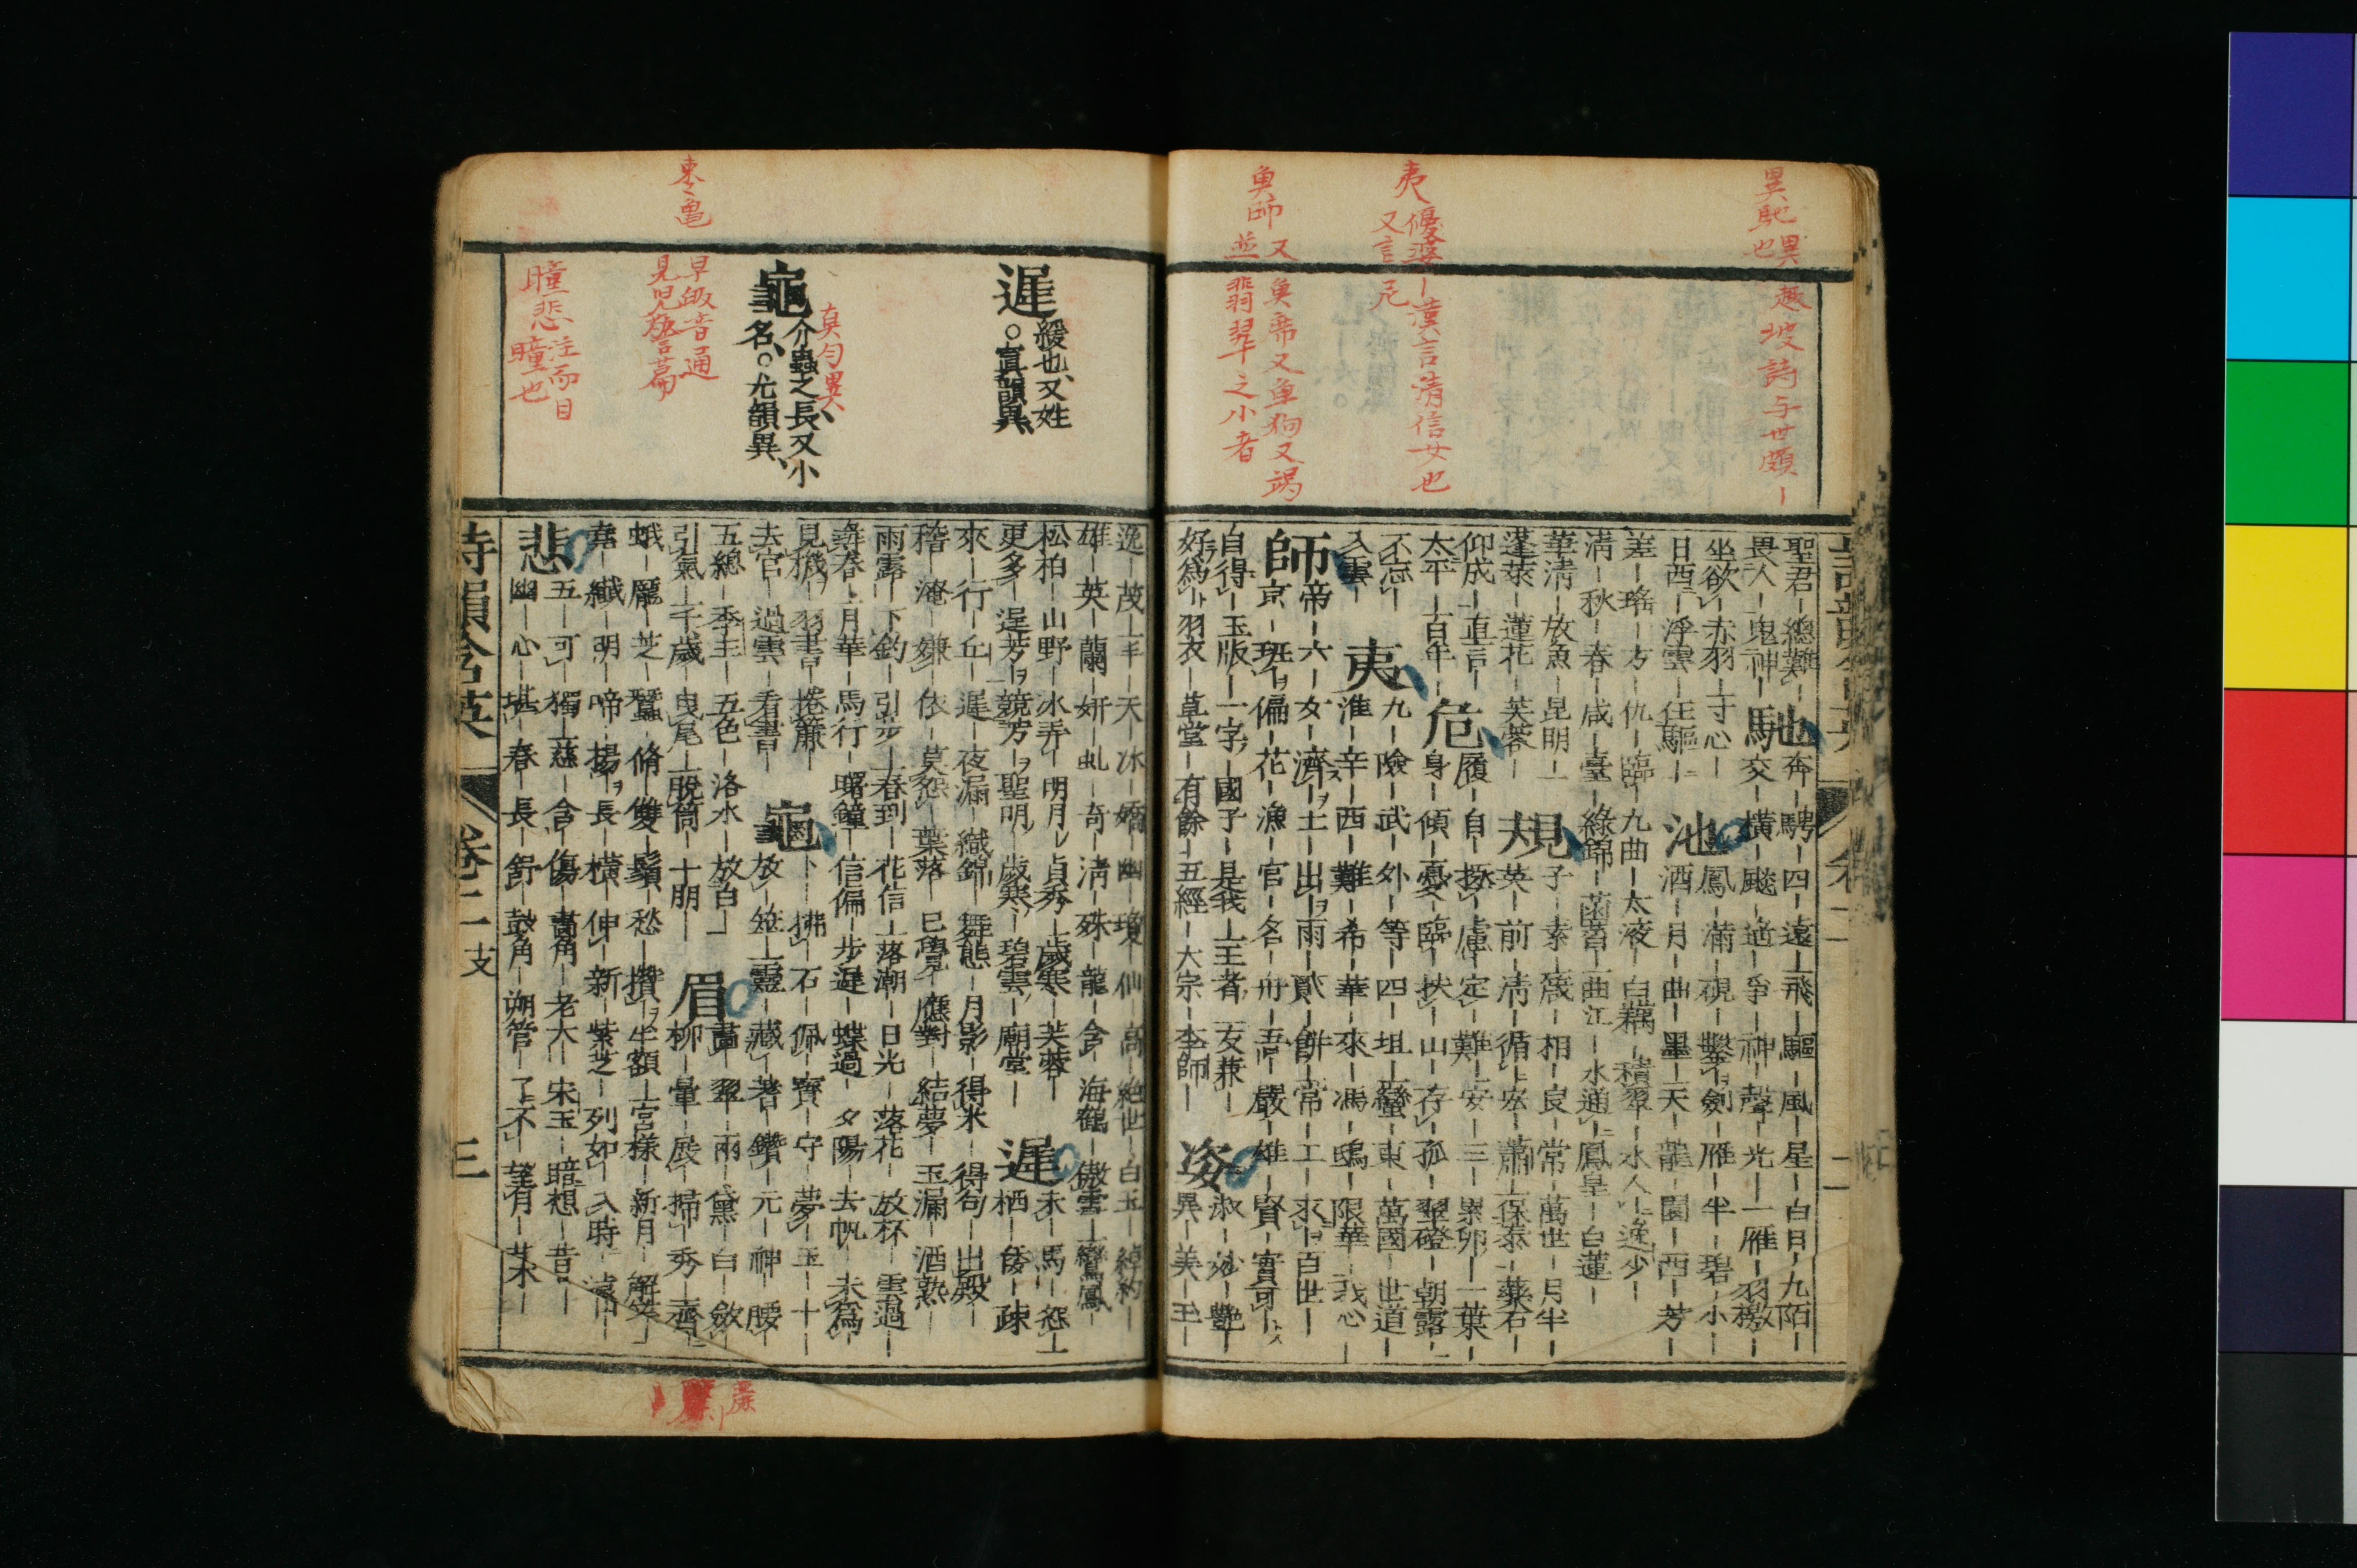 異馳異也
趣坡詩与世頗｜
夷優婆｜漢言清信女也
又言尼
魚師又魚帶又
並翡翠之小者
聖君｜總難｜馳奔｜騁｜四｜遠｜飛｜驅｜風｜星｜白日｜九陌｜
畏人｜鬼神｜交｜橫｜飈｜適｜爭｜神｜聲｜光｜一雁｜羽檄｜
坐欲｜赤羽｜寸心｜池鳳｜滿｜硯｜鑿｜劍｜雁｜半｜碧｜小｜
日西｜浮雲｜任驅｜酒｜月｜曲｜墨｜天｜龍｜園｜西｜芳｜
差｜瑤｜方｜仇｜臨｜九曲｜太液｜白藕｜積翠｜水人｜逸少｜
清｜秋｜春｜咸｜臺｜綠錦｜菡萏｜曲江｜水通｜鳳皇｜白蓮｜
華清｜放魚｜昆明｜規子｜素｜箴｜相｜良｜常｜萬世｜月半｜
蓬萊｜蓮花｜芙蓉｜英｜前｜清｜循｜宏｜蕭｜保泰｜藥石｜
仰成｜直言｜危履｜自｜拯｜慮｜定｜難｜安｜三｜累卵｜一葉｜
太平｜百年｜身｜傾｜憂｜臨｜扶｜山｜存｜孤｜翠磴｜朝露｜
不忘｜夷九｜險｜武｜外｜等｜四｜坦｜蠻｜東｜萬國｜世道｜
入雲｜淮｜辛｜西｜難｜希｜華｜來｜馮｜鴟｜限華｜我心｜
師帝｜六｜女｜濟｜土｜出｜雨｜貳｜餅｜常｜工｜來｜百世｜
京｜班｜偏｜花｜漁｜官｜名｜舟｜吾｜嚴｜雄｜賢｜實可｜
自得｜玉版｜一字｜國子｜是我｜王者｜友兼｜姿淑｜妙｜艷｜
好爲｜羽衣｜草堂｜有餘｜五經｜大宗｜李師｜異｜美｜玉｜
遲緩也又姓
。寘韻異
眞匀異
龜介蟲之長又小
名。尤韻異
早皈音通
瞳悲注而目
瞳也
逸｜茂｜丰｜天｜冰｜嬌｜幽｜瓊｜仙｜高｜絕世｜白玉｜綽約｜
雄｜英｜蘭｜妍｜虬｜奇｜清｜殊｜龍｜含｜海鶴｜傲雲｜鸞鳳｜
松柏｜山野｜水弄｜明月｜貞秀｜歲寒｜芙蓉｜遲未｜馬｜怨｜
更多｜逞芳｜競芳｜聖明｜歲寒｜碧雲｜廟堂｜栖｜倭｜疎
來｜行｜丘｜遲｜夜漏｜織錦｜舞態｜月影｜得米｜得句｜出殿｜
稽｜淹｜嫌｜依｜莫怨｜葉落｜巳覺｜應對｜結夢｜玉漏｜酒熟｜
雨露｜下釣｜引步｜春到｜花信｜落潮｜日光｜落花｜放杯｜雲過｜
尋春｜月華｜馬行｜曙鐘｜信偏｜步遲｜蝶過｜夕陽｜去帆｜未爲｜
見機｜羽書｜捲簾｜龜卜｜拂｜石｜佩｜寶｜守｜夢｜玉｜十｜
去官｜過雲｜看書｜放｜筮｜靈｜藏｜著｜鑽｜元｜神｜腰｜
五總｜季主｜五色｜洛水｜放白｜眉畫｜翠｜雨｜黛｜白｜斂｜
引氣｜千歲｜曳尾｜脫筒｜十朋｜柳｜暈｜展｜掃｜秀｜齊｜
蛾｜龐｜芝｜蠶｜脩｜雙｜鬚｜愁｜攢｜半額｜宮樣｜新月｜解笑｜
軒｜纖｜明｜啼｜揚｜長｜橫｜伸｜新｜紫芝｜列如｜入時｜遠｜
悲五｜可｜獨｜慈｜含｜傷｜萬角｜老大｜宋玉｜暗想｜昔｜
幽｜心｜堪｜春｜長｜舒｜鼓角｜朔管｜了不｜望有｜茱｜
詩韻含英 卷二 支 三